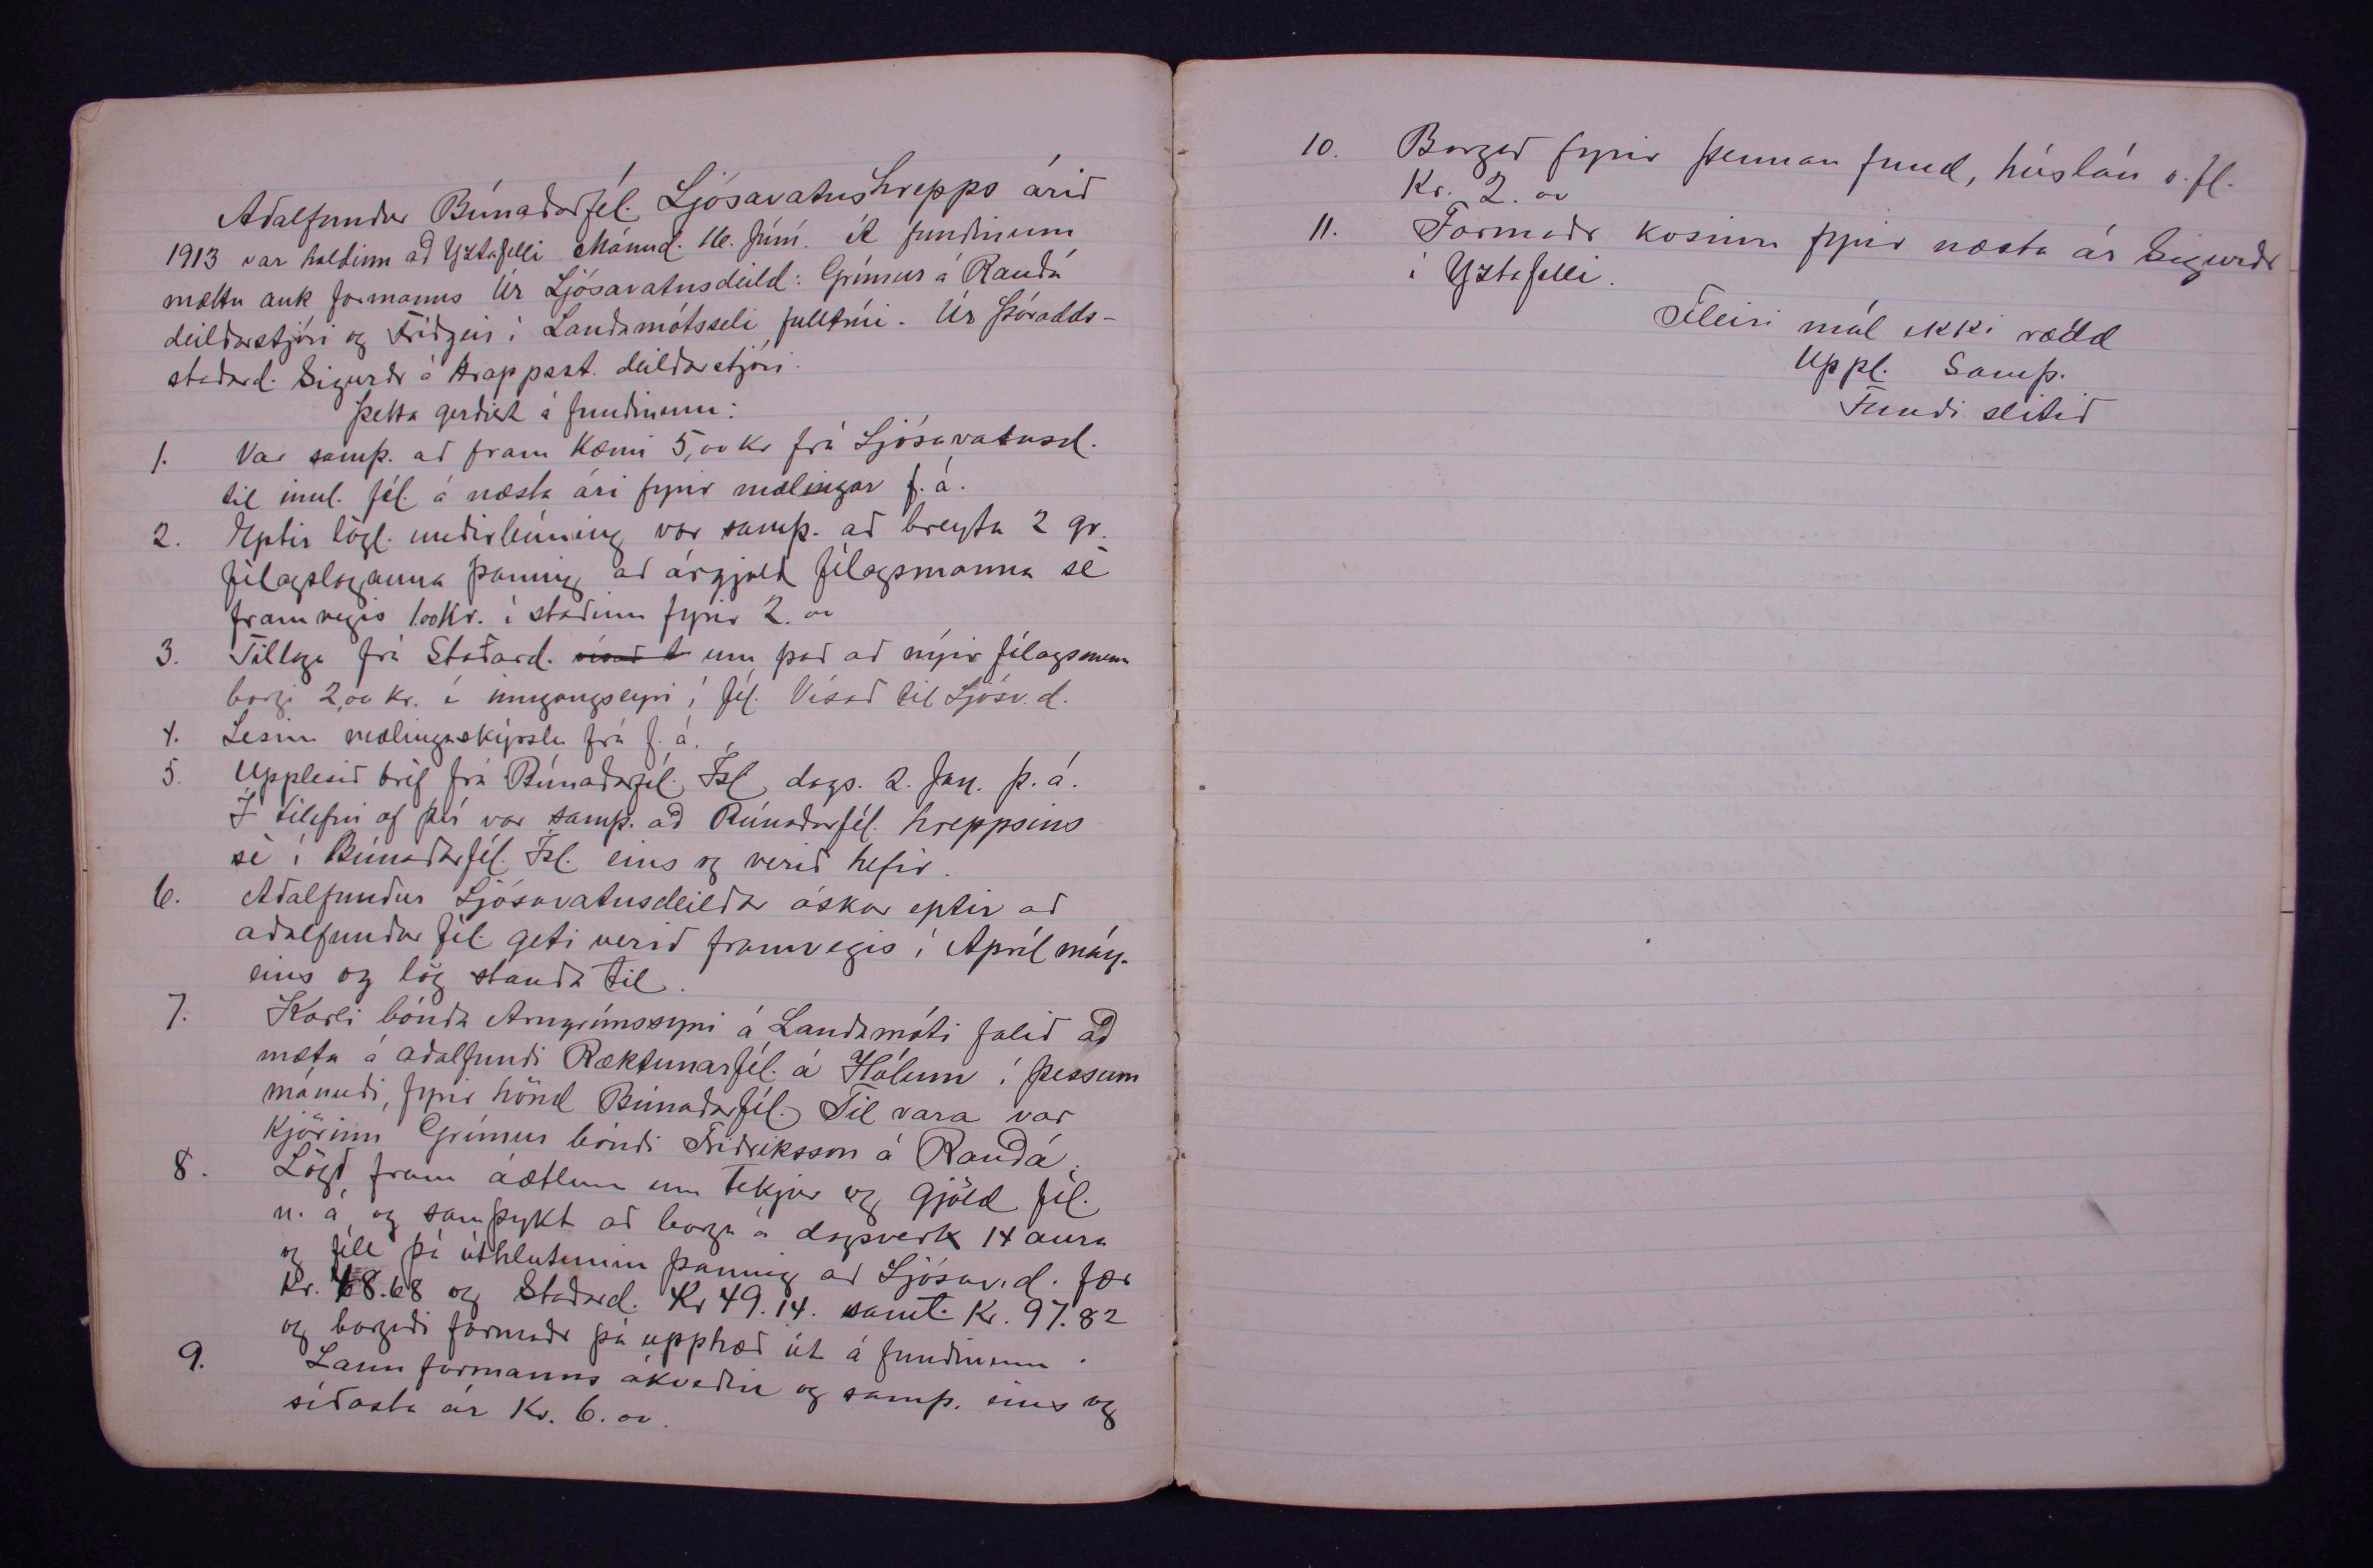 Adalfundur Búnadarfél. Ljósavatnshrepps árid
1913 var haldinn ad Yztafelli Mánud. 16. Júní. Á fundinum
mættu auk formanns Úr Ljósavatnsdeild: Grímur á Raudá
deildarstjóri og Fridgeir í Landamótsseli fulltrúi. Úr Þórodds-
stadard. Sigurdr á Arappsst. deildarstjóri.
Þetta gerdist á fundinum:
1. Var samþ. ad fram kæmi 5,00 kr frá Ljósavatnsd.
til innl. fél. á næsta ári fyrir mælingar f. á.
2. Eptir lögl. undirbúning var samþ. ad breyta 2 gr.
félagsloganna þannig ad árgjald félagsmanna sé
framvegis 1.00 kr. í stadinn fyrir 2.00
3. Tillaga frá Stadard. vísad t um þad ad nýir félagsmenn
borgi 2,00 kr. í inngangseyri í fél. Vísad til Ljósv.d.
4. Lesin mælingaskýrsla frá f. á.
5. Upplesid bréf frá Búnadarfél. Ísl. dags. 2. Jan. þ. á.
Í tilefni af því var samþ. ad Búnadarfél. hreppsins
sé í Búnadarfél. Ísl. eins og verid hefir.
6. Adalfundur Ljósavatnsdeildar óskar eptir ad
adalfundur fél. geti verid framvegis í Apríl mán.
eins og lög standa til.
7. Karli bónda Arngrímssyni á Landamóti falid ad
mæta á adalfundi Ræktunarfél. á Hólum í þessum
mánudi, fyrir hönd Búnadarfél. Til vara var
kjörinn Grímur bóndi Fridriksson á Raudá.
8. Lögd fram áætlun um tekjur og gjöld fél.
n. á, og samþykt ad borga á dagsverk 14 aura
og féll þá úthlutunin þannig ad Ljósav.d. fær
Kr. 48.68 og Stadard. Kr 49.14. samt. Kr. 97.82
og borgadi formadr þá upphæd út á fundinum.
9. Laun formanns ákvedin og samþ. eins og
sídasta ár Kr. 6.00.
10. Borgad fyrir þennan fund, húslán o.fl.
Kr. 2.00
11. Formadr kosinn fyrir næsta ár Sigurdr
í Yztafelli.
Fleiri mál ekki rædd
Uppl. Samþ.
Fundi slitid